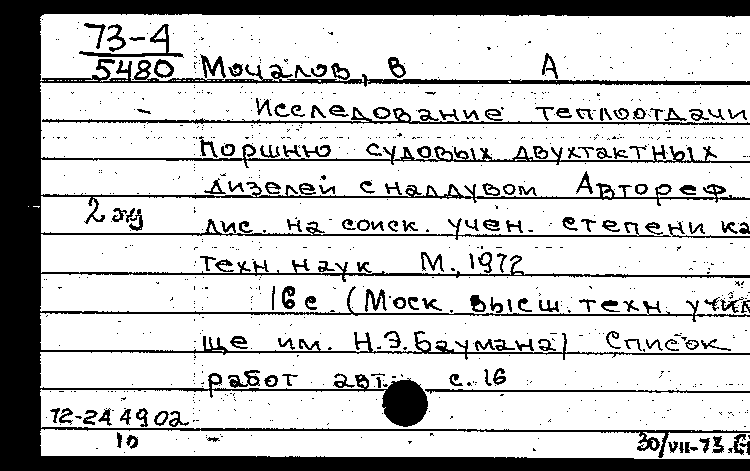 73-4
5480 Мочалов, В А
Исследование теплоотдачи
поршню судовых двухтактных
дизелей с наддувом Автореф
2 эу
дис. на соиск. учен. степени ка
техн. наук. М., 1972
16 с. (Моск. высш. техн. учили
ще им. Н.Э.Баумана) Список
работ авт.: с. 16
72-244902
10
30/VII-73.